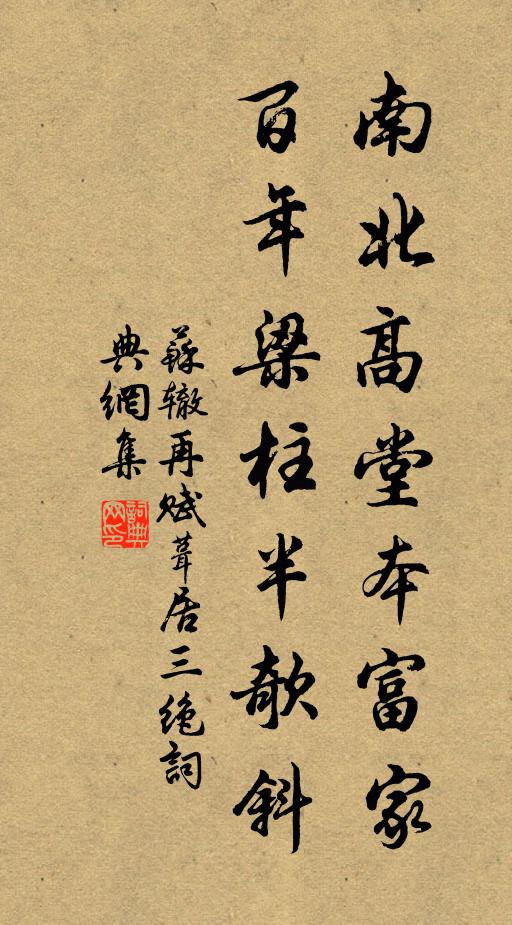 南北高堂本富家
百年梁柱半欹斜
蘇辙再赋葺居三绝詞
典網集
詞典
网印